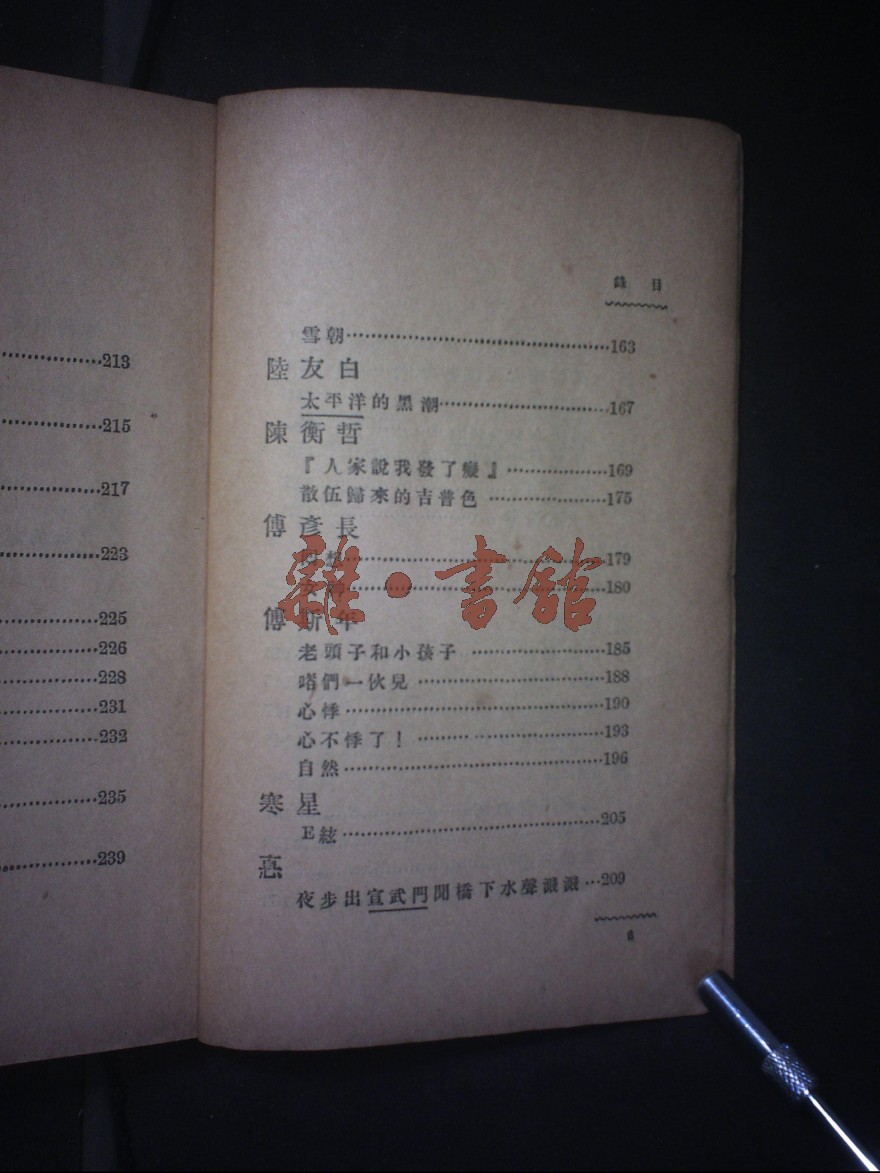 213
215
217
223
225
226
228
231
232
235
239
錄目
雪朝……163
陸友白
太平洋的黑潮……167
陳衡哲
『人家說我發了癡』……169
散伍歸來的吉普色……175
傅彥長
……179
……180
傅斯年
老頭子和小孩子……185
喒們一伙兒……188
心悸……190
心不悸了！……193
自然……196
寒星
E絃……205
夜步出宣武門聞橋下水聲濺濺…209
6
雜·書館